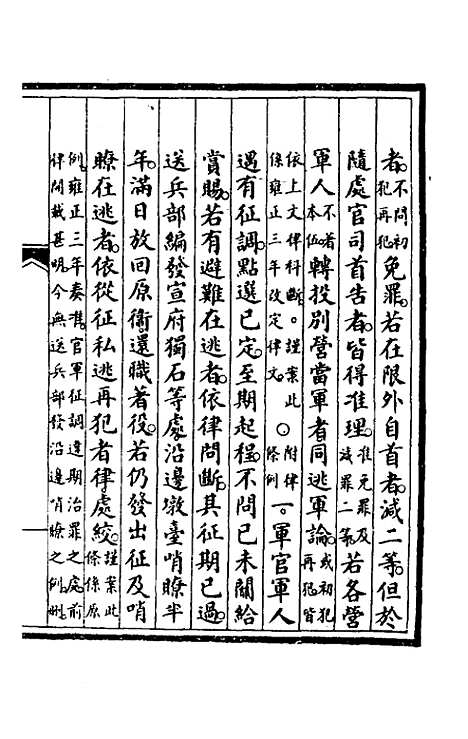 者。不問初犯再犯免罪。若在限外自首者。減二等。但於
隨處官司首告者。皆得准理。准免罪及減罪二等。若各營
軍人不着本伍轉投別營當軍者同逃軍論。或初犯再犯皆
依上文律科斷。謹案此條雍正三年改定律文。○附律條例一。軍官軍人
遇有征調點選已定。至期起程。不問已未關給
賞賜。若有避難在逃者。依律問斷。其征期已過。
送兵部編發宣府獨石等處沿邊墩臺哨瞭半
年。滿日放回原衞還職著役。若仍發出征及哨
瞭在逃者。依從征私逃再犯者律處絞。謹案此條係原
例。雍正三年奏准。官軍征調違期治罪之處。前律開載甚明。今無送兵部發沿邊哨瞭之例。刪。